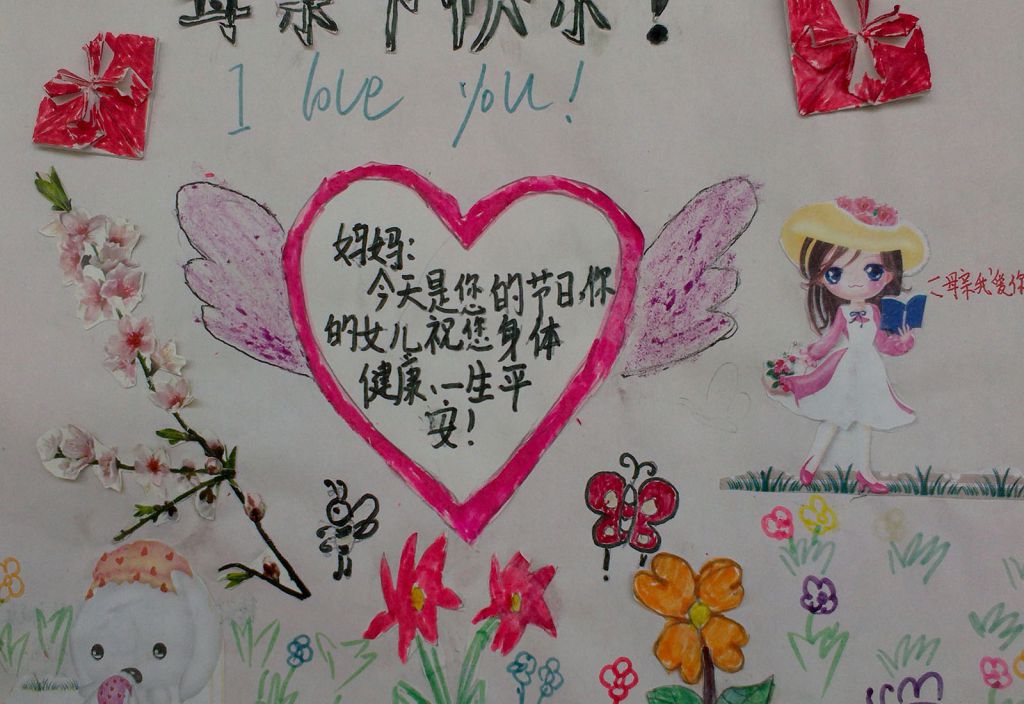 母亲节快乐!
I love you!
妈妈:
今天是您的节日,你
的女儿祝您身体
健康、一生平
安!
母亲我爱你